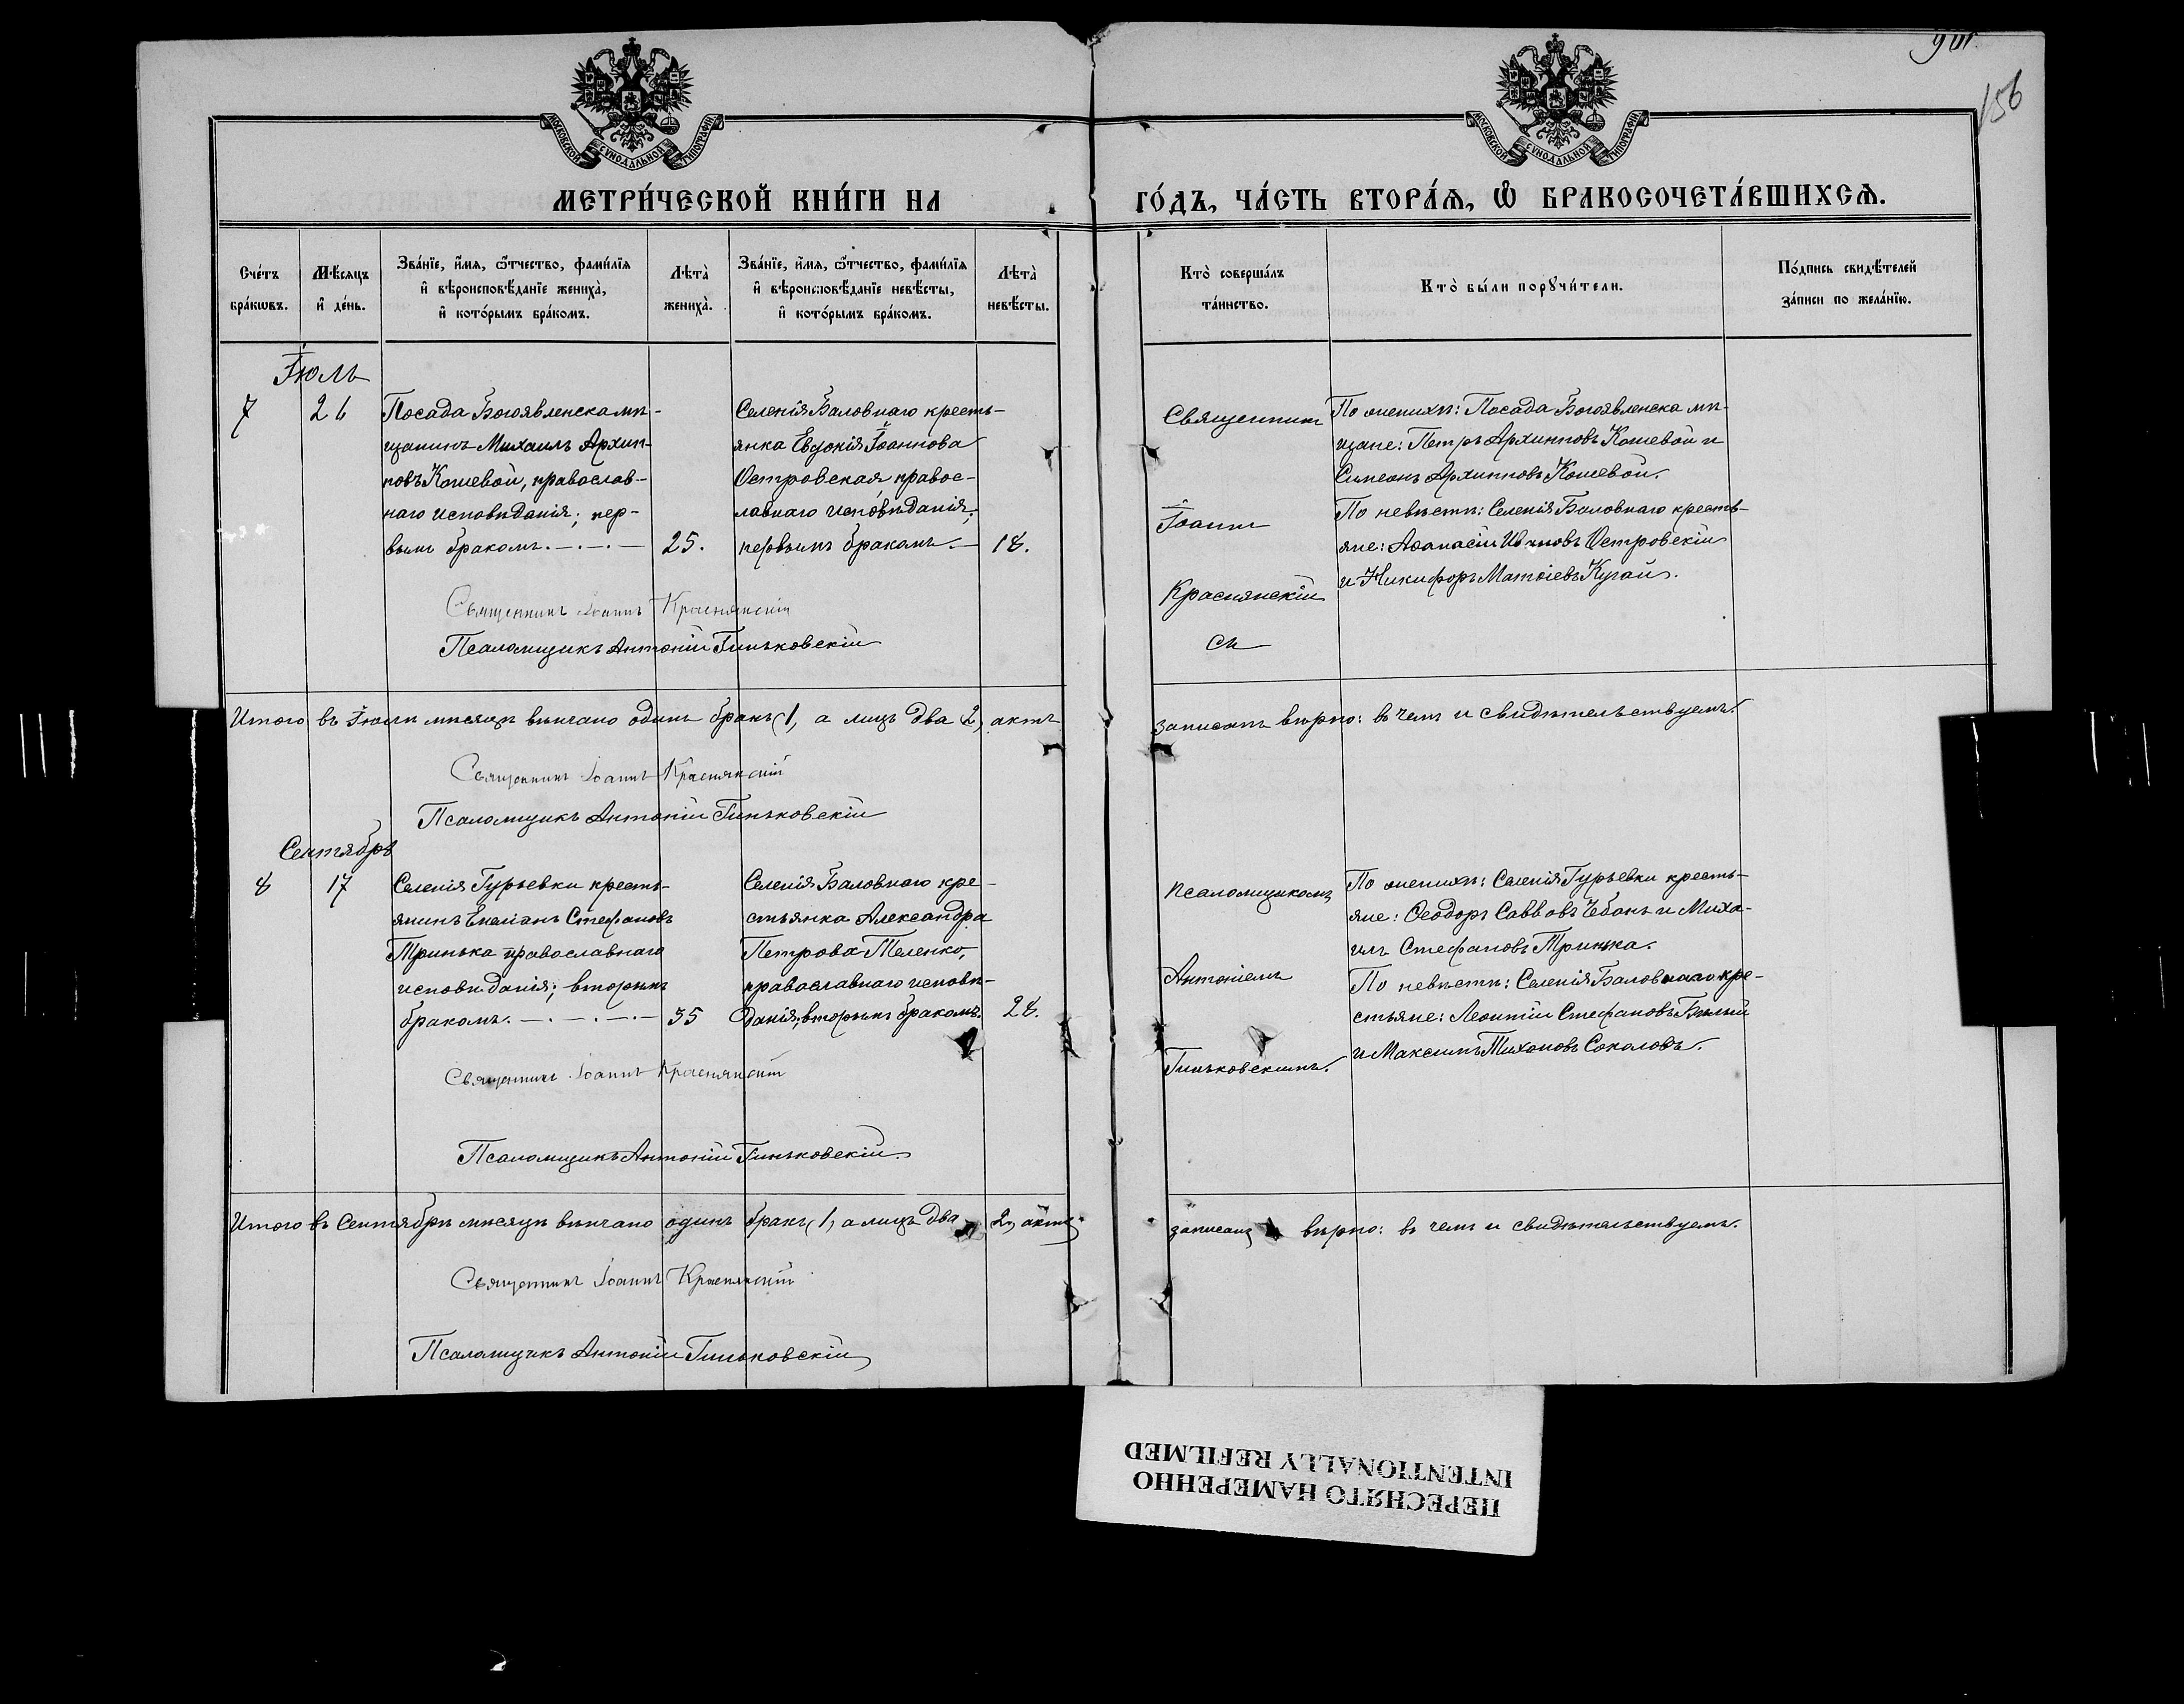 901.
156
МОСКОВСКОЙ СУНОДАЛЬНОЙ ТИПОГРАФІИ
МОСКОВСКОЙ СУНОДАЛЬНОЙ ТИПОГРАФІИ
МЕТРИ́ЧЕСКОЙ КНИ́ГИ НА
ГО́ДЪ, ЧА́СТЬ ВТОРА́Ѧ, Ѽ БРАКОСОЧЕТА́ВШИХСѦ.
Сче́тъ
бра́кѡвъ.
Мѣ́сяцъ
и҆ де́нь.
Зва́нїе, и҆́мѧ, ѻ҆́тчество, фами́лїѧ
и҆ вѣроисповѣ́данїе жениха̀,
и҆ кото́рымъ бра́комъ.
Лѣта̀
жениха̀.
Зва́нїе, и҆́мѧ, ѻ҆́тчество, фами́лїѧ
и҆ вѣроисповѣ́данїе невѣ́сты,
и҆ кото́рымъ бра́комъ.
Лѣта̀
невѣ́сты.
Кто̀ соверша́лъ
та́инство.
Кто̀ бы́ли порꙋчи́тели.
По́дпись свидѣ́телей
за́писи по жела́нїю.
Іюль
7
26
Посада Богоявленска мѣ-
щанинъ Михаилъ Архип-
повъ Кошевой, православ-
наго исповѣданія; пер-
вымъ бракомъ. —.—.—
25.
Селенія Баловнаго кресть-
янка Евдокія Іоаннова
Островская правос-
лавнаго исповѣданія;
первымъ бракомъ.—
18.
Священник
Іоанн
Краснянскій
съ
По женихѣ: Посада Богоявленска мѣ-
щане: Петръ Архипповъ Кошевой и
Симеонъ Архипповъ Кошевой.
По невѣстѣ: Селенія Баловнаго кресть-
яне: Аѳанасій Ивановъ Островскій
и Никифоръ Матѳіевъ Кугай.
Священникъ Іоаннъ Краснянскій
Псаломщикъ Антоній Гиньковскій
Итого въ Іюлѣ мѣсяцѣ вѣнчано одинъ бракъ (1, а лицъ два 2) актъ
записанъ вѣрно: въ чемъ и свидѣтельствуемъ.
Священникъ Іоаннъ Краснянскій
Псаломщикъ Антоній Гиньковскій
Сентябрь
8
17
Селенія Гурьевки кресть-
янинъ Емеліанъ Стефановъ
Тринька православнаго
исповѣданія; вторымъ
бракомъ. —.—.—.—
35
Селенія Баловнаго кре-
стьянка Александра
Петрова Теленко,
православнаго исповѣ-
данія; вторымъ бракомъ.
28.
псаломщикомъ
Антоніемъ
Гиньковскимъ.
По женихѣ: Селенія Гурьевки кресть-
яне: Ѳеодоръ Саввовъ Чебанъ и Миха-
илъ Стефановъ Тринька.
По невѣстѣ: Селенія Баловнаго кре-
стьяне: Леонтій Стефановъ Бѣлый
и Максимъ Тихоновъ Соколовъ.
Священникъ Іоаннъ Краснянскій
Псаломщикъ Антоній Гиньковскій.
Итого въ Сентябрѣ мѣсяцѣ вѣнчано одинъ бракъ (1, а лицъ два 2) актъ
записанъ вѣрно: въ чемъ и свидѣтельствуемъ.
Священникъ Іоаннъ Краснянскій
Псаломщикъ Антоній Гиньковскій
ПЕРЕСНЯТО НАМЕРЕННО
INTENTIONALLY REFILMED